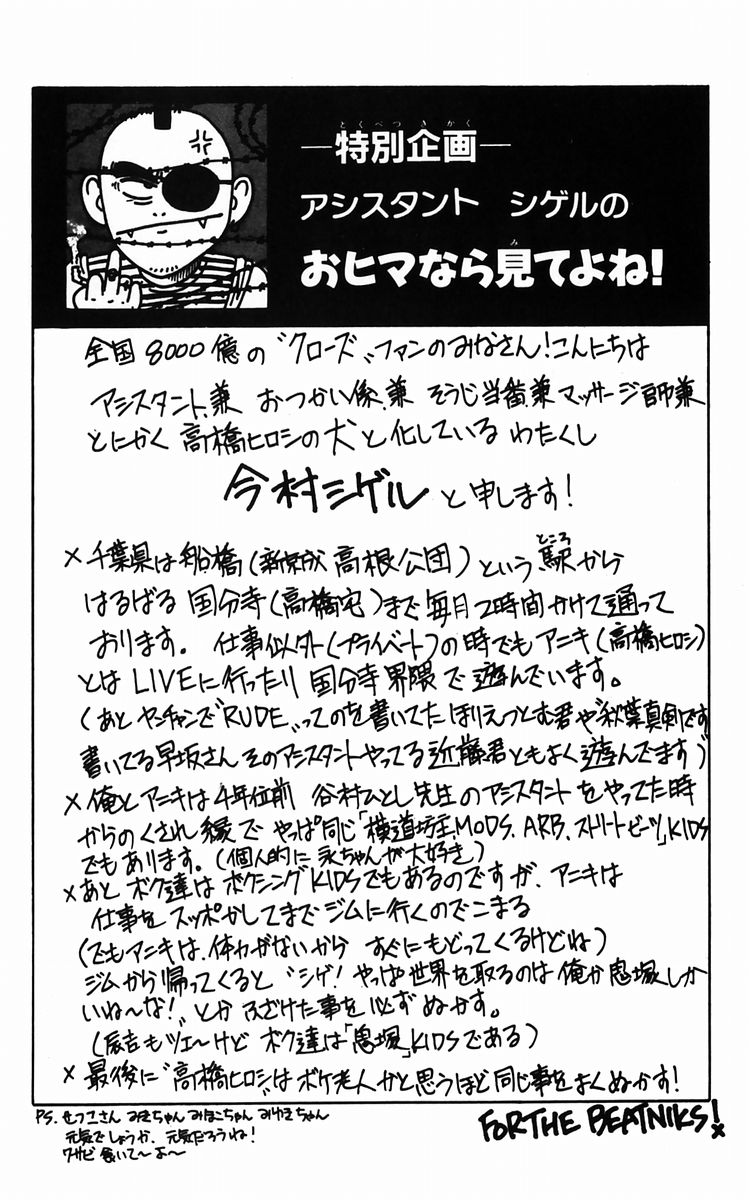 ―特別企画―
とくべつきかく
アシスタント シゲルの
おヒマなら見てよね!
み
全国8000億の〝クローズ〟ファンのみなさん!こんにちは
アシスタント兼 おつかい係兼 そうじ当番兼マッサージ師兼
とにかく 高橋ヒロシの犬と化している わたくし
今村シゲル と申します!
×千葉県は船橋(新京成 高根公団)という駅から
ところ
はるばる 国分寺(高橋宅)まで毎月2時間かけて通って
おります。 仕事似外(プライベート)の時でもアニキ(高橋ヒロシ)
とはLIVEに行ったり国分寺界隈で遊んでいます。
(あとヤンチャンで〝RUDE〟ってのを書いてたほりえつとむ君や〝秋葉真剣です〟
書いてる早坂さんそのアシスタントやってる近藤君ともよく遊んでます)
×俺とアニキは4年位前 谷村ひとし先生のアシスタントをやってた時
からのくされ縁で やっぱ同じ「横道坊主、MODS、ARB、ストリートビーツ」KIDS
でもあります。(個人的に永ちゃんが大好き)
×あと ボク達はボクシングKIDSでもあるのですが、アニキは
仕事をスッポかしてまでジムに行くのでこまる
(でもアニキは、体力がないから すぐにもどってくるけどね)
ジムから帰ってくると〝シゲ!やっぱ世界を取るのは俺か鬼塚しか
いね〜な!〟とかふざけた事を必ずぬかす。
(辰吉もツエ〜けど ボク達は「鬼塚」KIDSである)
×最後に〝高橋ヒロシ〟はボケ老人かと思うほど同じ事をよくぬかす!
PS. セツコさん みきちゃん みほこちゃん みゆきちゃん
元気でしょうか、元気だろうね!
ワサビ食いて〜よ〜
FOR THE BEATNIKS!